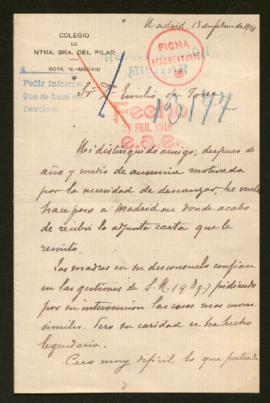 Madrid, 13 de febrero de 1918
COLEGIO
DE
NTRA. SRA. DEL PILAR
GOYA, 10.-MADRID
FICHA
Pedir informe
Que se hace
Devolver
Sr. Dn. Emilio de Torres
13177
Fecho
FEB. 1918
Mi distinguido amigo; despues de
año y medio de ausencia motivada
por la necesidad de descansar, he vuelto
hace poco á Madrid en donde acabo
de recibir la adjunta carta que le
remito.
Las madres en su desconsuelo confian
en las gestiones de S. M. (q. D. g.) pidiendo
por su intervencion las cosas mas
Pero su caridad se ha hecho
legendaria.
Creo muy dificil lo que